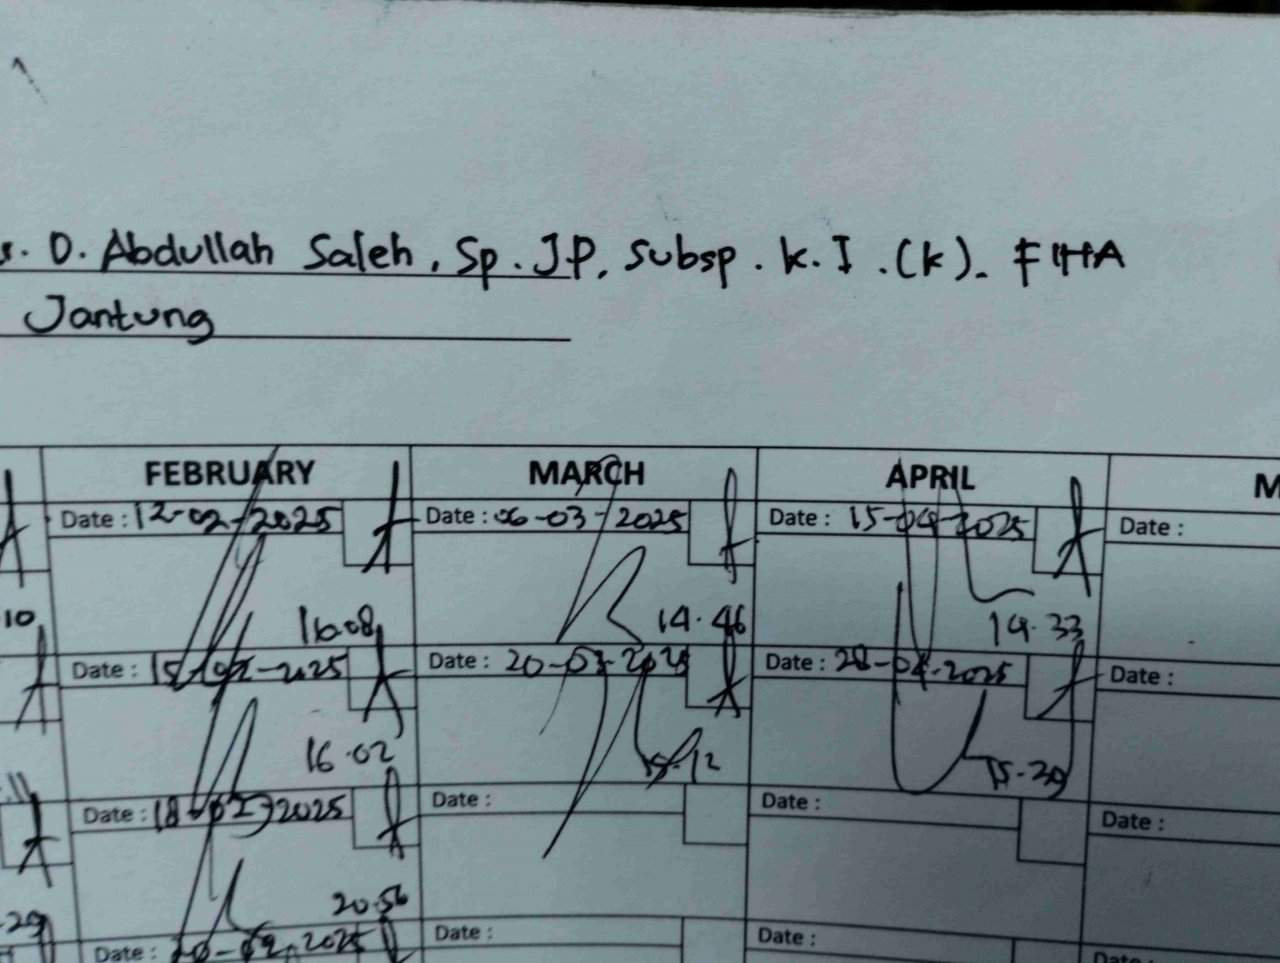 D. Abdullah Saleh, Sp. JP, Subsp. K.I.(K). FIHA
Jantung
FEBRUARY MARCH APRIL
Date : 12-02-2025 Date : 06-03-2025 Date : 15-04-2025 Date :
10 16.08 14.46 14.33
Date : 15-02-2025 Date : 20-03-2025 Date : 28-04-2025 Date :
16.02 15.12 15.39
Date : 18-02-2025 Date : Date : Date :
.29 20.56
Date : 20-02-2025 Date : Date : Date